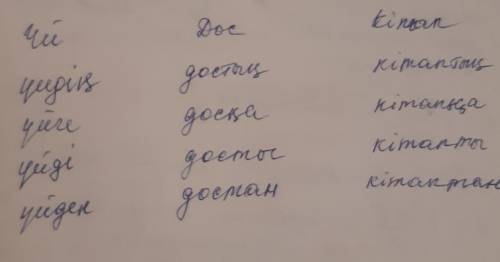 үй Дос Кітап
үйдің достың кітаптың
үйге досқа кітапқа
үйді досты кітапты
үйден достан кітаптан